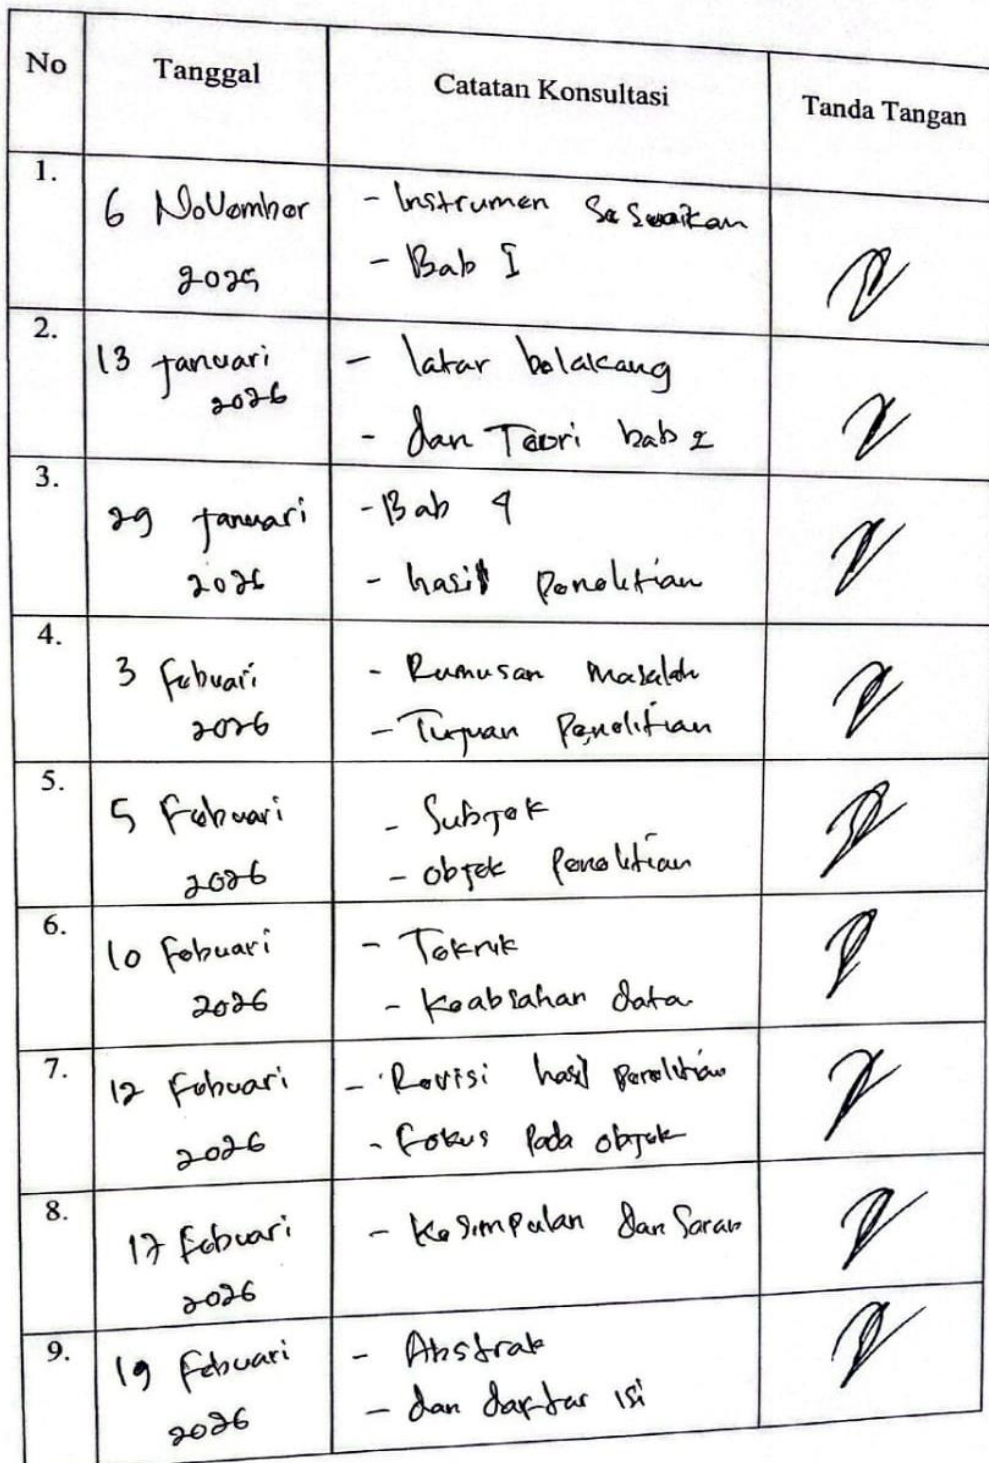 No Tanggal Catatan Konsultasi Tanda Tangan
1.
6 November - Instrumen Sesuaikan
2025 - Bab I
2.
13 Januari - latar belakang
2026
- dan Teori bab 2
3.
29 Januari - Bab 4
2026 - hasil Penelitian
4.
3 Febuari - Rumusan Masalah
2026 - Tujuan Penelitian
5.
5 Febuari - Subjek
2026 - objek penelitian
6.
10 Febuari - Teknik
2026 - Keabsahan data
7.
12 Febuari - Revisi hasil penelitian
2026 - Fokus Pada objek
8.
17 Febuari - Kesimpulan dan Saran
2026
9.
19 Febuari - Abstrak
2026 - dan daftar isi